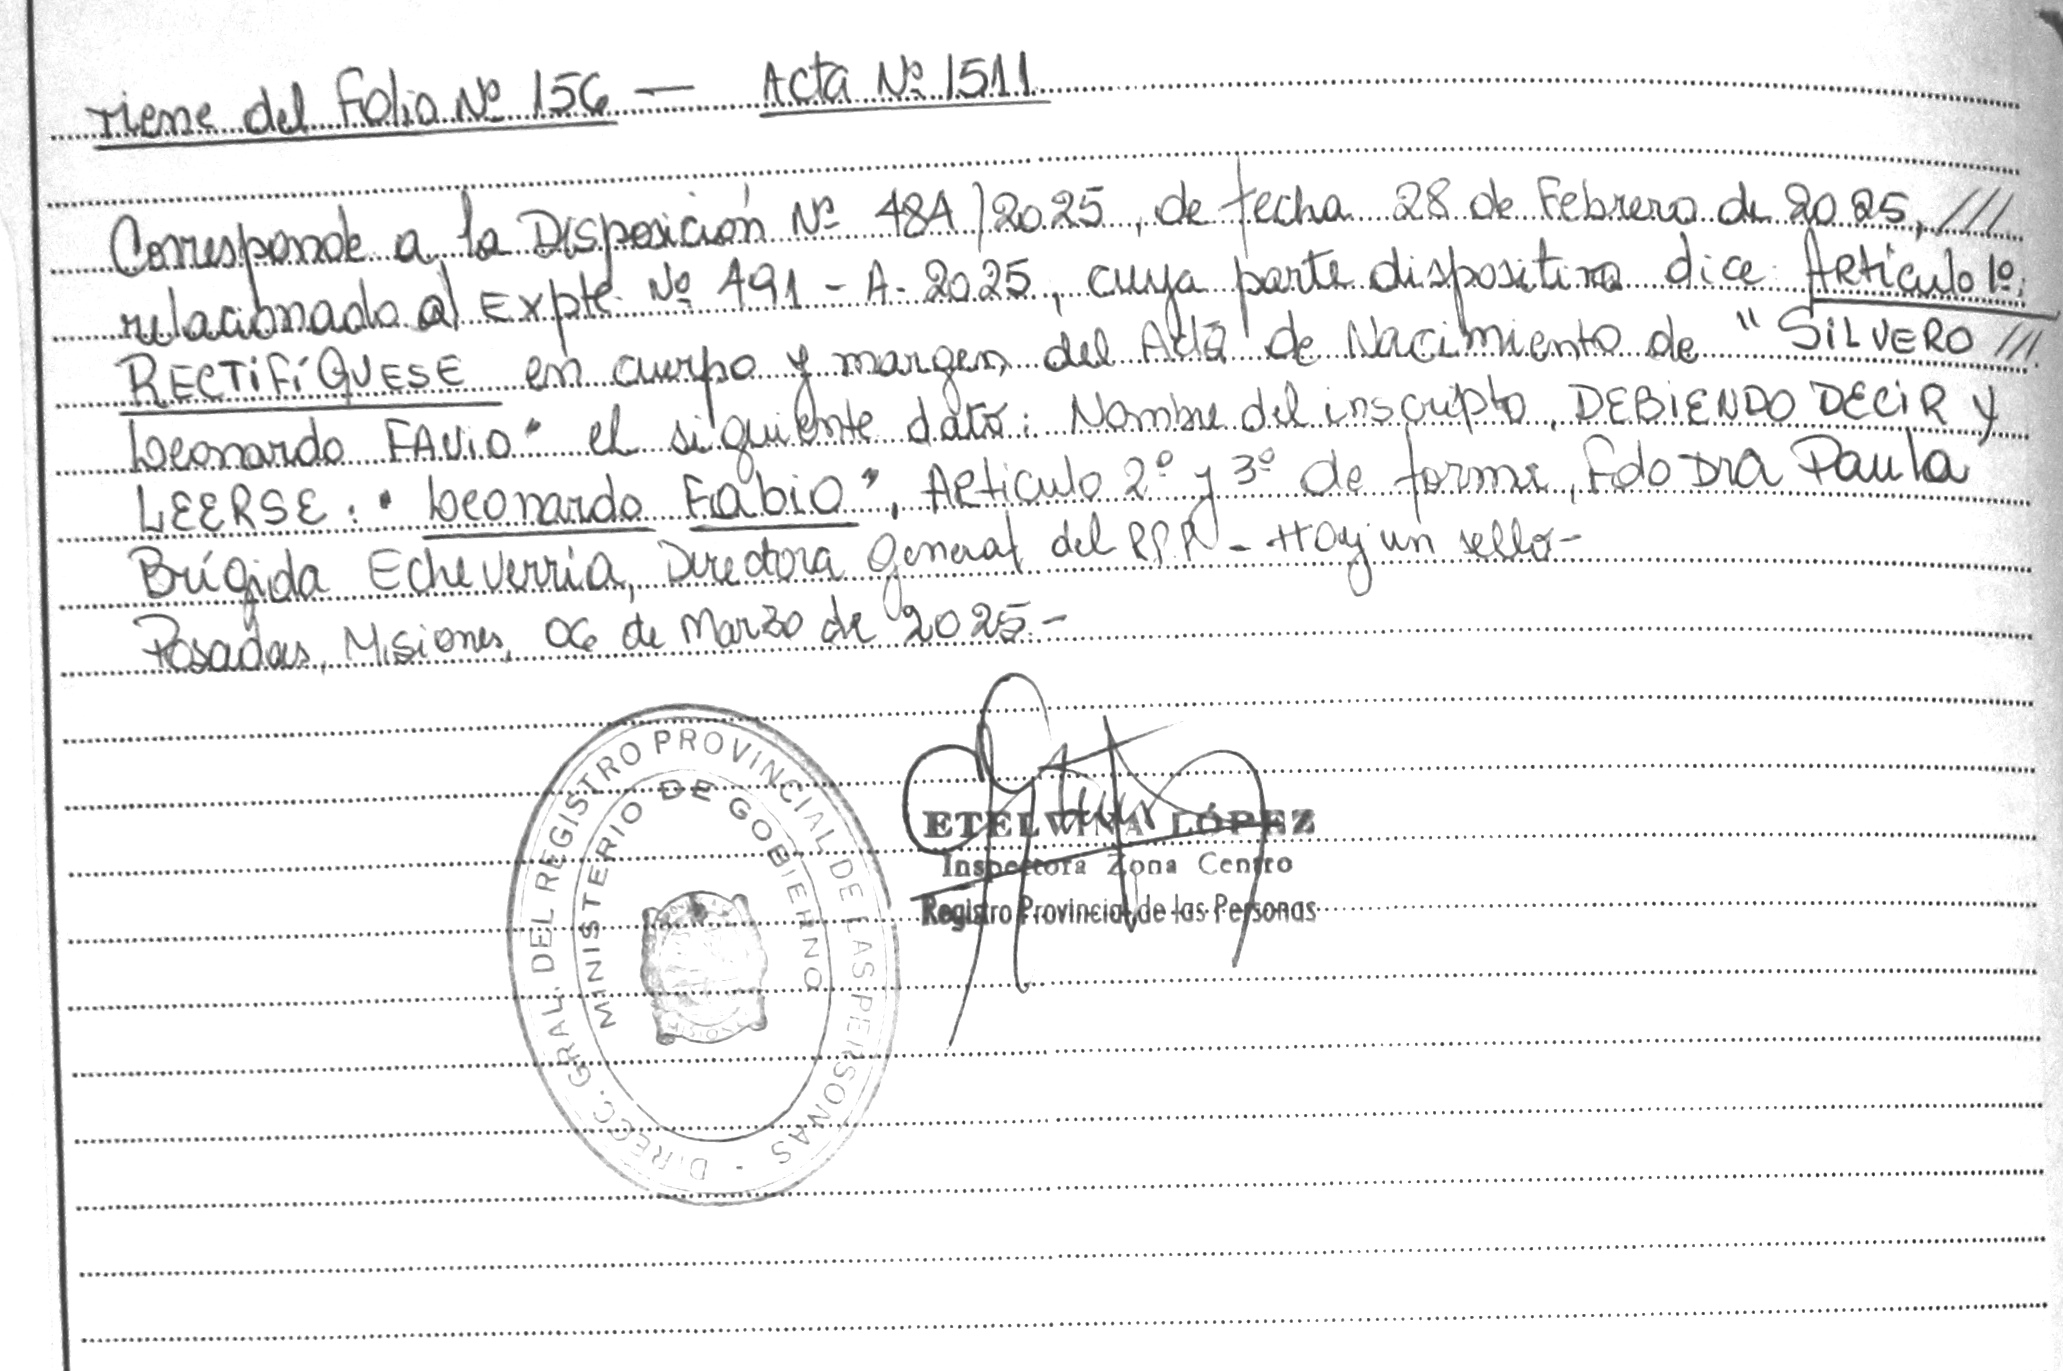 Viene del Folio Nº 156 — Acta Nº 1511
Corresponde a la Disposición Nº 484/2025, de fecha 28 de Febrero de 2025, ///
relacionado al Expte. Nº 491 - A - 2025, cuya parte dispositiva dice: Artículo 1º:
RECTIFÍQUESE en cuerpo y margen del Acta de Nacimiento de "SILVERO ///
Leonardo FAVIO" el siguiente dato: Nombre del inscripto, DEBIENDO DECIR Y
LEERSE: "Leonardo Fabio", Artículo 2º y 3º de forma, Fdo Dra Paula
Brígida Echeverría, Directora General del R.P.P. - Hay un sello -
Posadas, Misiones, 06 de Marzo de 2025.-
DIRECC. GRAL. DEL REGISTRO PROVINCIAL DE LAS PERSONAS
MINISTERIO DE GOBIERNO
ETELVINA LÓPEZ
Inspectora Zona Centro
Registro Provincial de las Personas